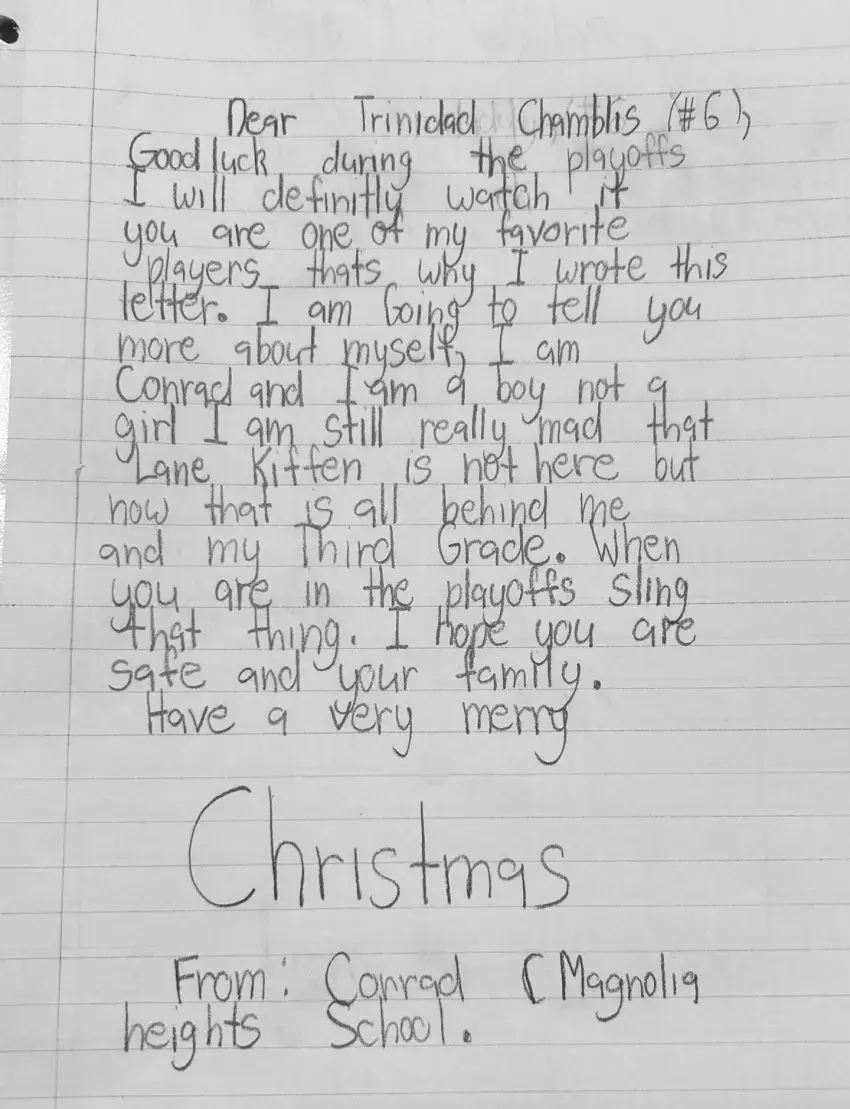 Dear Trinidad Chamblis (#6),
Good luck during the playoffs
I will definitly watch it
you are one of my favorite
players thats why I wrote this
letter. I am Going to tell you
more about myself, I am
Conrad and I am a boy not a
girl I am still really mad that
Lane Kiffen is not here but
now that is all behind me
and my Third Grade. When
you are in the playoffs sling
that thing. I Hope you are
safe and your family.
Have a very merry
Christmas
From: Conrad (Magnolia
heights School.